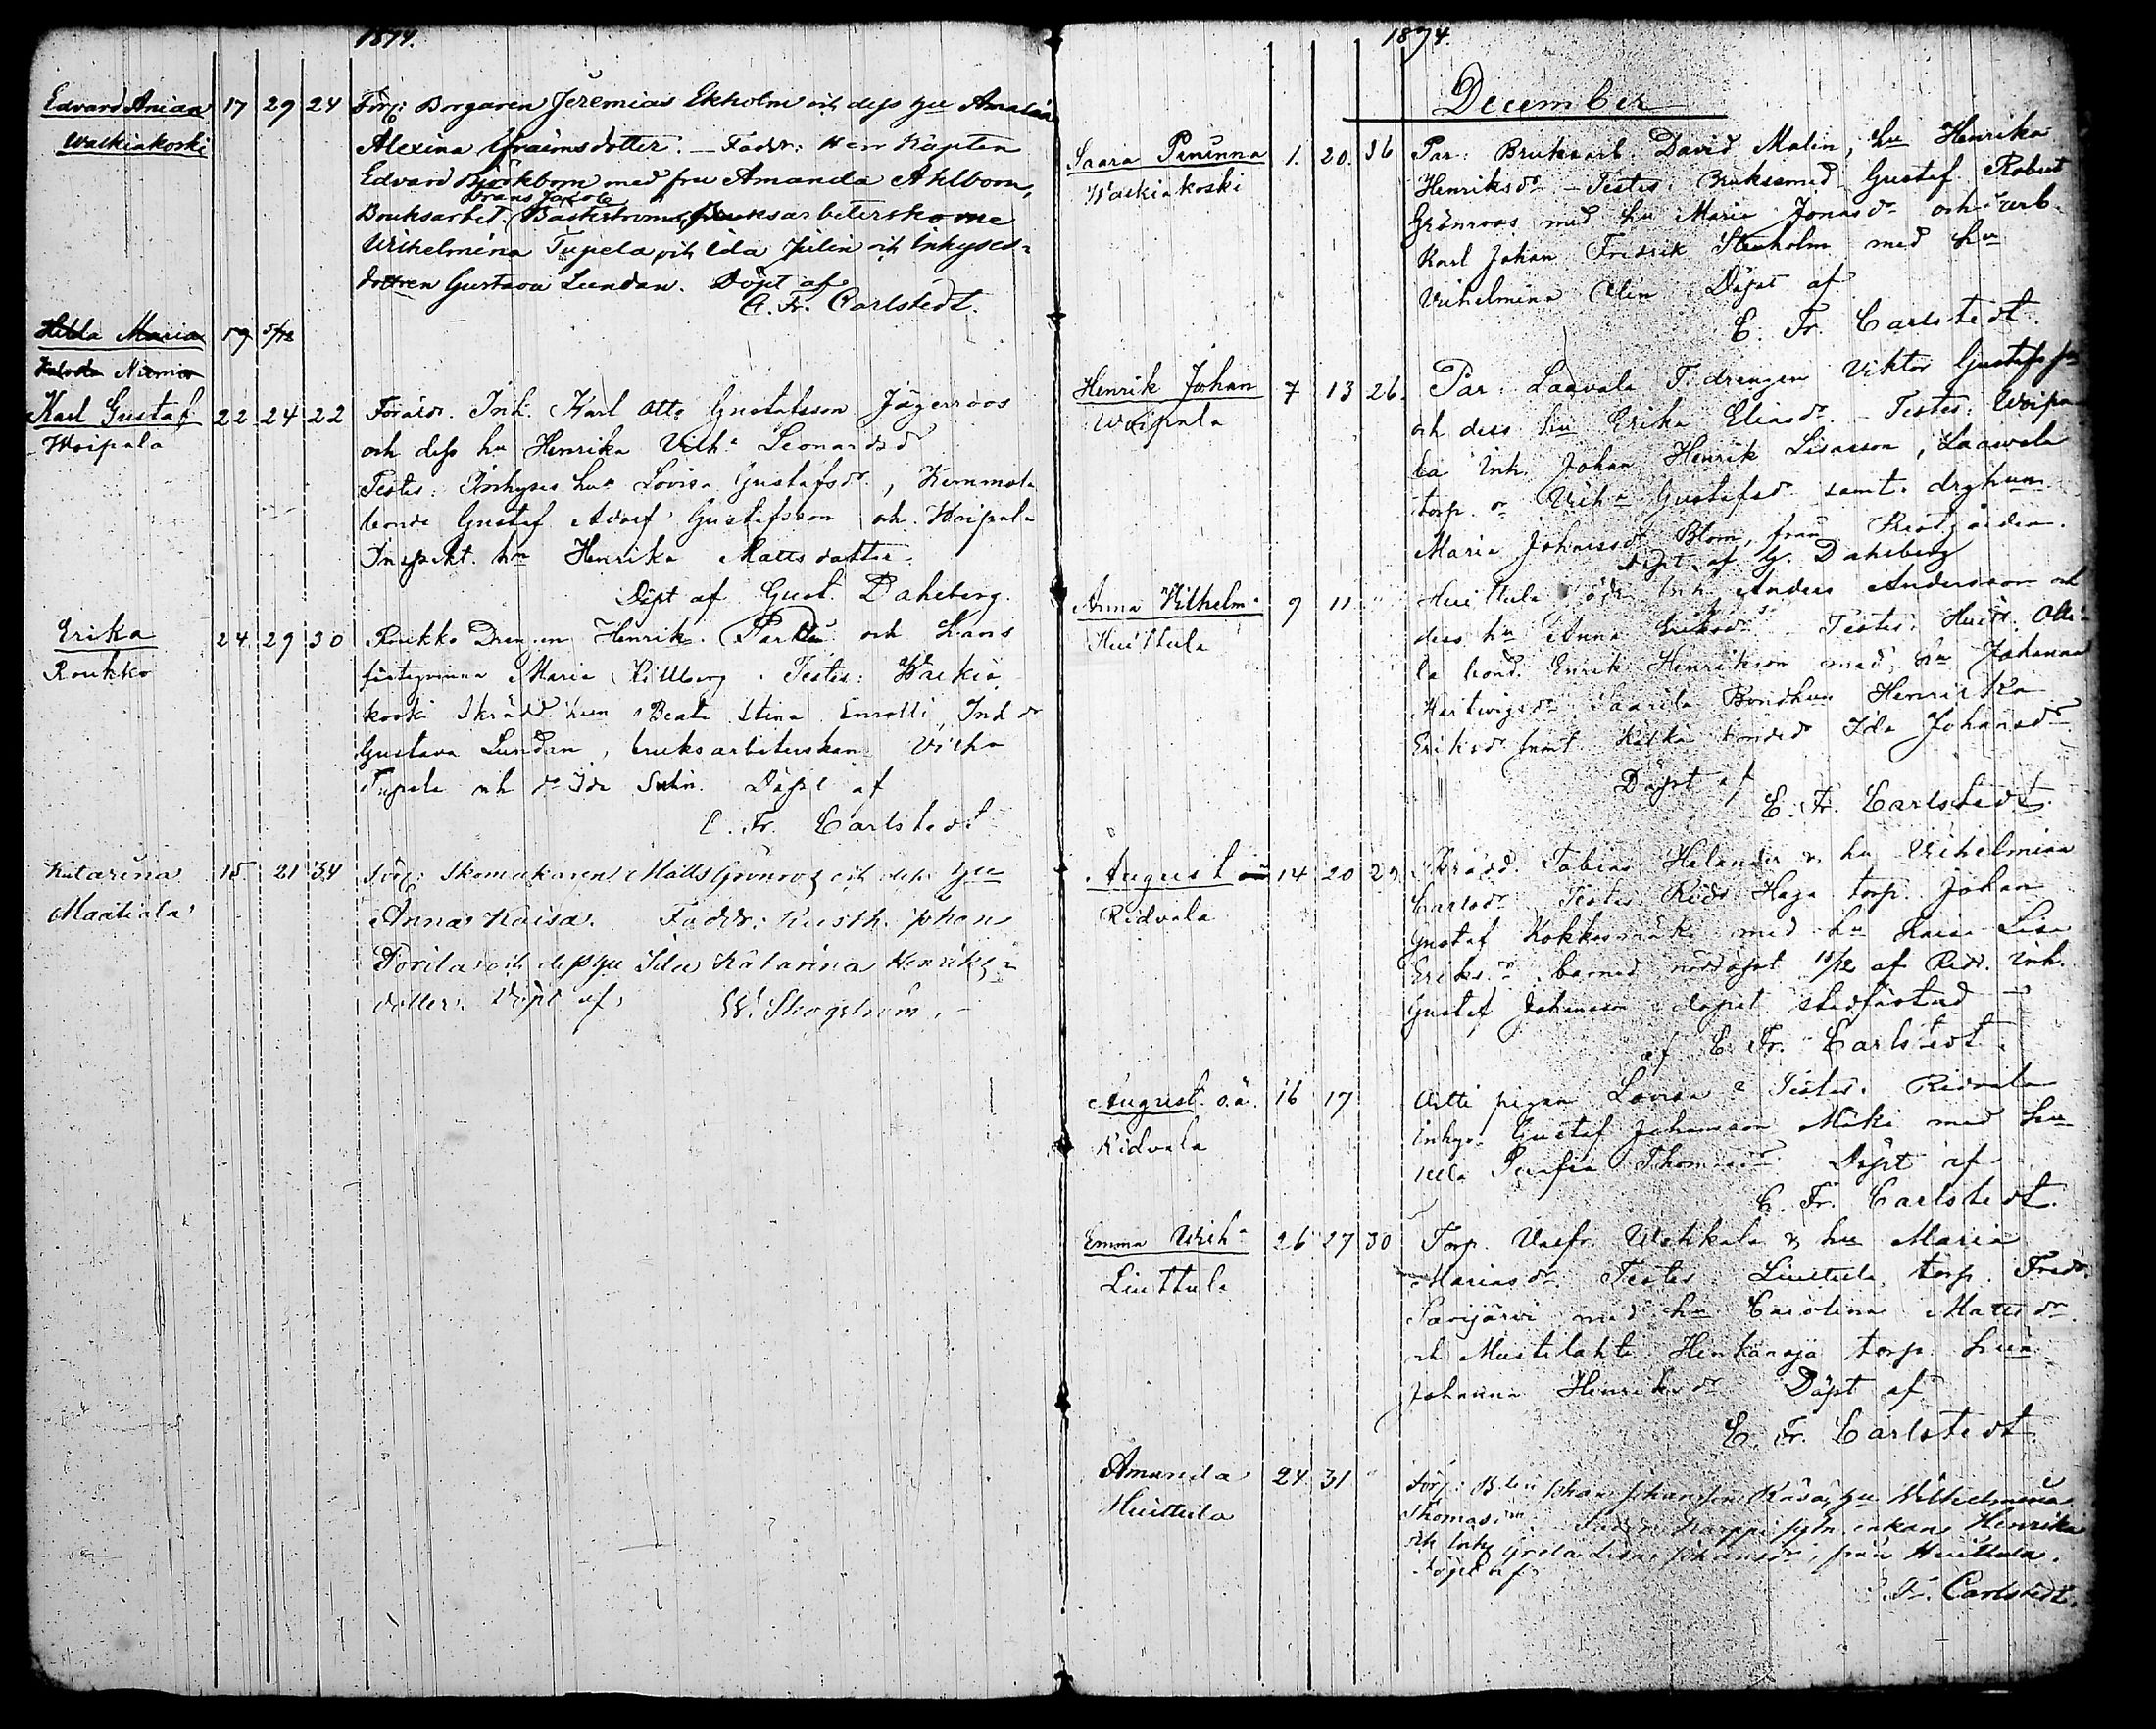 1874.
Edvard Anian 17 29 24 Förä: Borgaren Jeremias Ekholm och dess hu Amalia
Walkiakoski Alexina Efraimsdotter. — Faddr: Herr Kapten
Edvard Björkbom med fru Amanda Ahlbom,
Bruksarbet. Bruksarbeterskorne
Wilhelmina Tupela och Ida Julin och Inhyses-
dottren Gustava Lundan. Döpt af
C. Fr. Carlstedt.
Hilda Maria 19 5/12
Niemis
Karl Gustaf 22 24 22 Föräldr. Inh. Karl Otto Gustafsson Jägerroos
Woipala och dess hu Henrika Vilh:a Leonardsdr
Testes: Inhyses hu Lovisa Gustafsdr, Kemmola
bonde Gustaf Adolf Gustafsson och Woipala
Inspekt. hu Henrika Mattsdotter.
Döpt af Gust. Dahlberg.
Erika 24 29 30 Roukko Drengen Henrik och Hans
Roukko fästeqvinna Maria Killberg. Testes: Walkia
koski Skrädd. hun Beata Stina Inh dr
Gustava Lundan, bruksarbeterskan Vilh:a
Tupela och do Ida Döpt af
C. Fr. Carlstedt
Katarina 15 21 34 Förä: Skomakaren Matts Grönroos och dess hu
Maatiala Anna Kaisa. Faddr: Rusth. Johan
Torila och dess hu Katarina Henriks-
dotter. Döpt af W. Skogström.
1874.
December
Saara Peninna 1. 20. 36 Par: Bruksarb. David Malin, hu Henrika
Walkiakoski Henriksdr — Testes: Brukssmed Gustaf Robert
Grönroos med hu Maria Jonasdr och arb.
Karl Johan Fredrik Stenholm med hu
Vilhelmina Döpt af
C. Fr. Carlstedt.
Henrik Johan 7 13 26. Par: Laavala T. drengen Viktor Gustafsson
Woipala och dess hu Erika Eliasdr. — Testes: Woipa
la Inh. Johan Henrik Lisasson, Laavala
torp. dr Vilh:a Gustafsdr samt drghun
Maria Johansdr Blom, från Prestgården.
Döpt af G. Dahlberg
Anna Vilhelm:a 9 11 " Huittula Inh. Anders Andersson och
Huittula dess hu Anna Eriksdr. Testes: Huitt.
la bond. Henrik Henriksson med hu Johanna
Hartvigsdr, Saarila Bondhun Henrika
Eriksdr samt bondedr Ida Johansdr
Döpt af
C. Fr. Carlstedt.
August 14 20 29 Skrädd. Tobias Helander & hu Vilhelmina
Ridvala Carlsdr. Testes: Ridv. Haga torp. Johan
Gustaf Kokkosmäki med hu Kaisa Lisa
Eriksdr, barnet nöddöpt 18/12 af Ridv. Inh.
Gustaf Johansson dopet stadfästad
af C. Fr. Carlstedt.
August o.ä. 16 17 Aitti pigan Lovisa Testes: Ridvala
Ridvala Inhys. Gustaf Johansson Mäki med hu
Ulla Thomasdr Döpt af
C. Fr. Carlstedt.
Emma Vilh:a 26 27 30 Torp. Valfr. & hu Maria
Liuttula Mariasdr. Testes: Liuttula torp. Fredr.
Savijärvi med hu Carolina Mattsdr.
och Mustilahti Henkanoja torp. hun
Johanna Henriksdr Döpt af
C. Fr. Carlstedt.
Amanda 24 31 " Förä: Johan Johansson hu Vilhelmina
Huittula Thomasdr. Henrika
och Inhys Greta Lisa Johansdr, från Huittula.
Döpt af
C. Fr. Carlstedt.